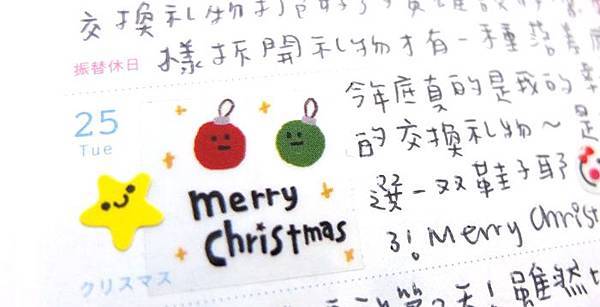 交換礼物
振替休日
樣拆開礼物才有一種落差
25
Tue
merry
christmas
クリスマス
今年底真的是我的幸
的交換礼物~是
選一双鞋子耶
了!merry christ
天!雖然